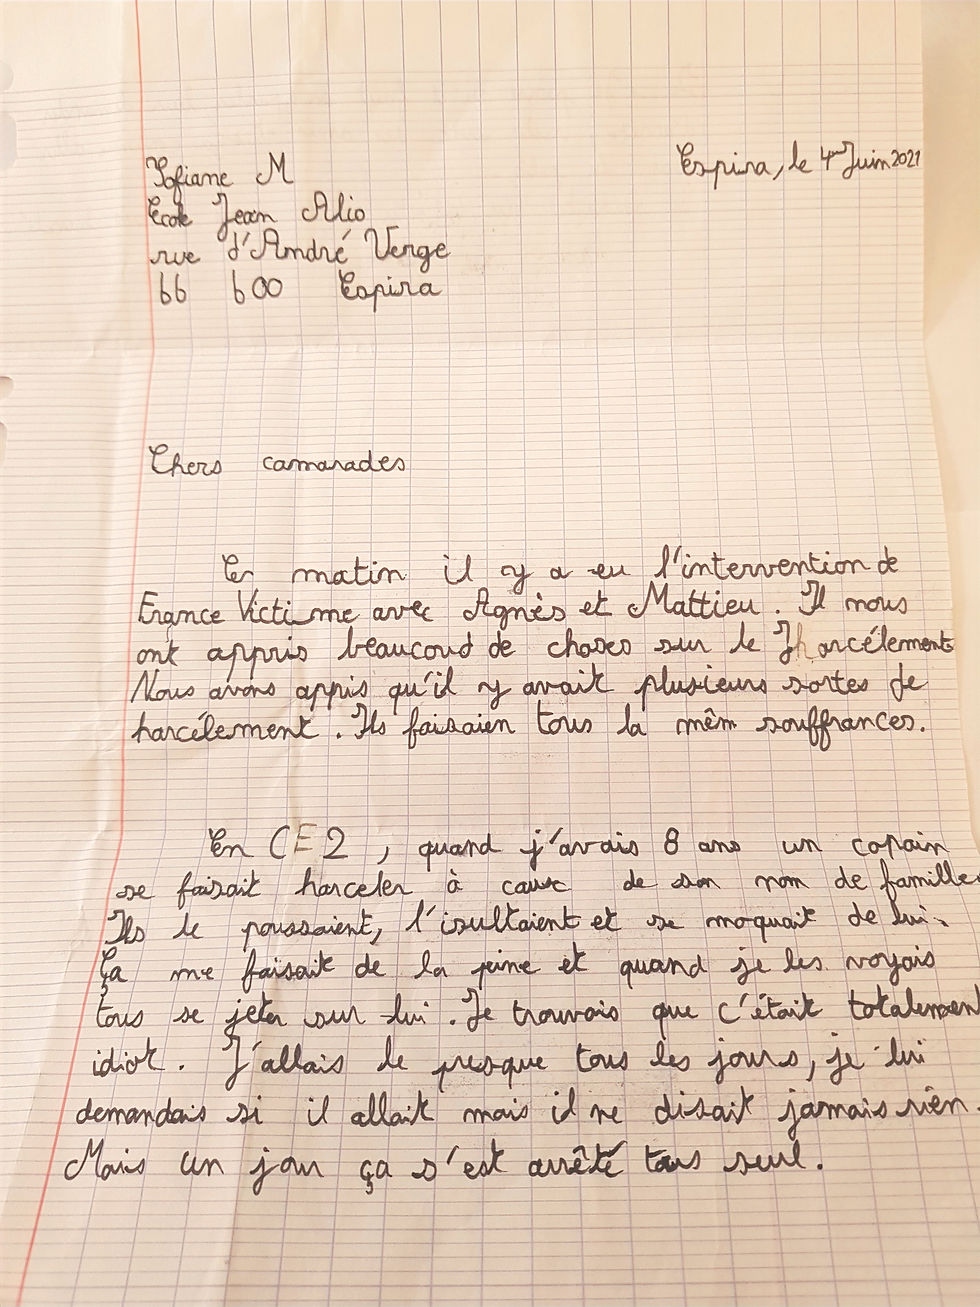 Sofiane M
Espira, le 4 Juin 2021
Ecole Jean Alio
rue d'André Verge
66 600 Espira
Chers camarades
Ce matin il y a eu l'intervention de
France Victime avec Agnès et Mattieu. Il nous
ont appris beaucoud de choses sur le harcélement
Nous avons appis qu'il y avait plusieurs sortes de
harcélement. Ils faisaien tous la mêm souffrances.
En CE2, quand j'avais 8 ans un copain
se faisait harceler à cause de son nom de famille
Ils le poussaient, l'isultaient et se moquait de lui.
Ça me faisait de la peine et quand je les voyais
tous se jeter sur lui. Je trouvais que c'était totalement
idiot. J'allais le presque tous les jours, je lui
demandais si il allait mais il ne disait jamais rien.
Mais un jour ça s'est arrêté tous seul.